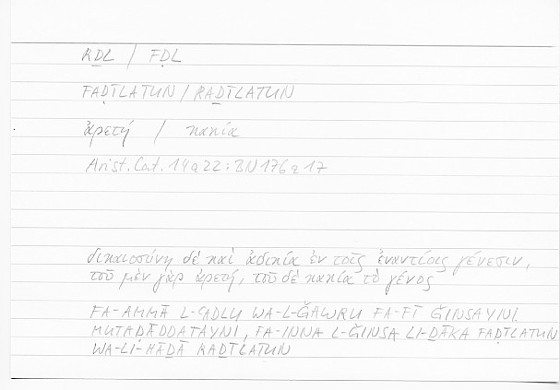 RḎL / FḌL
FAḌĪLATUN / RAḎĪLATUN
ἀρετή / κακία
Arist. Cat. 14a22: BN 176a17
δικαιοσύνη δὲ καὶ ἀδικία ἐν τοῖς ἐναντίοις γένεσιν,
τοῦ μὲν γὰρ ἀρετή, τοῦ δὲ κακία τὸ γένος
FA-AMMĀ L-ꜤADLU WA-L-ǦAWRU FA-FĪ ǦINSAYNI
MUTAḌĀDDATAYNI, FA-INNA L-ǦINSA LI-ḎĀKA FAḌĪLATUN
WA-LI-HĀḎĀ RAḎĪLATUN